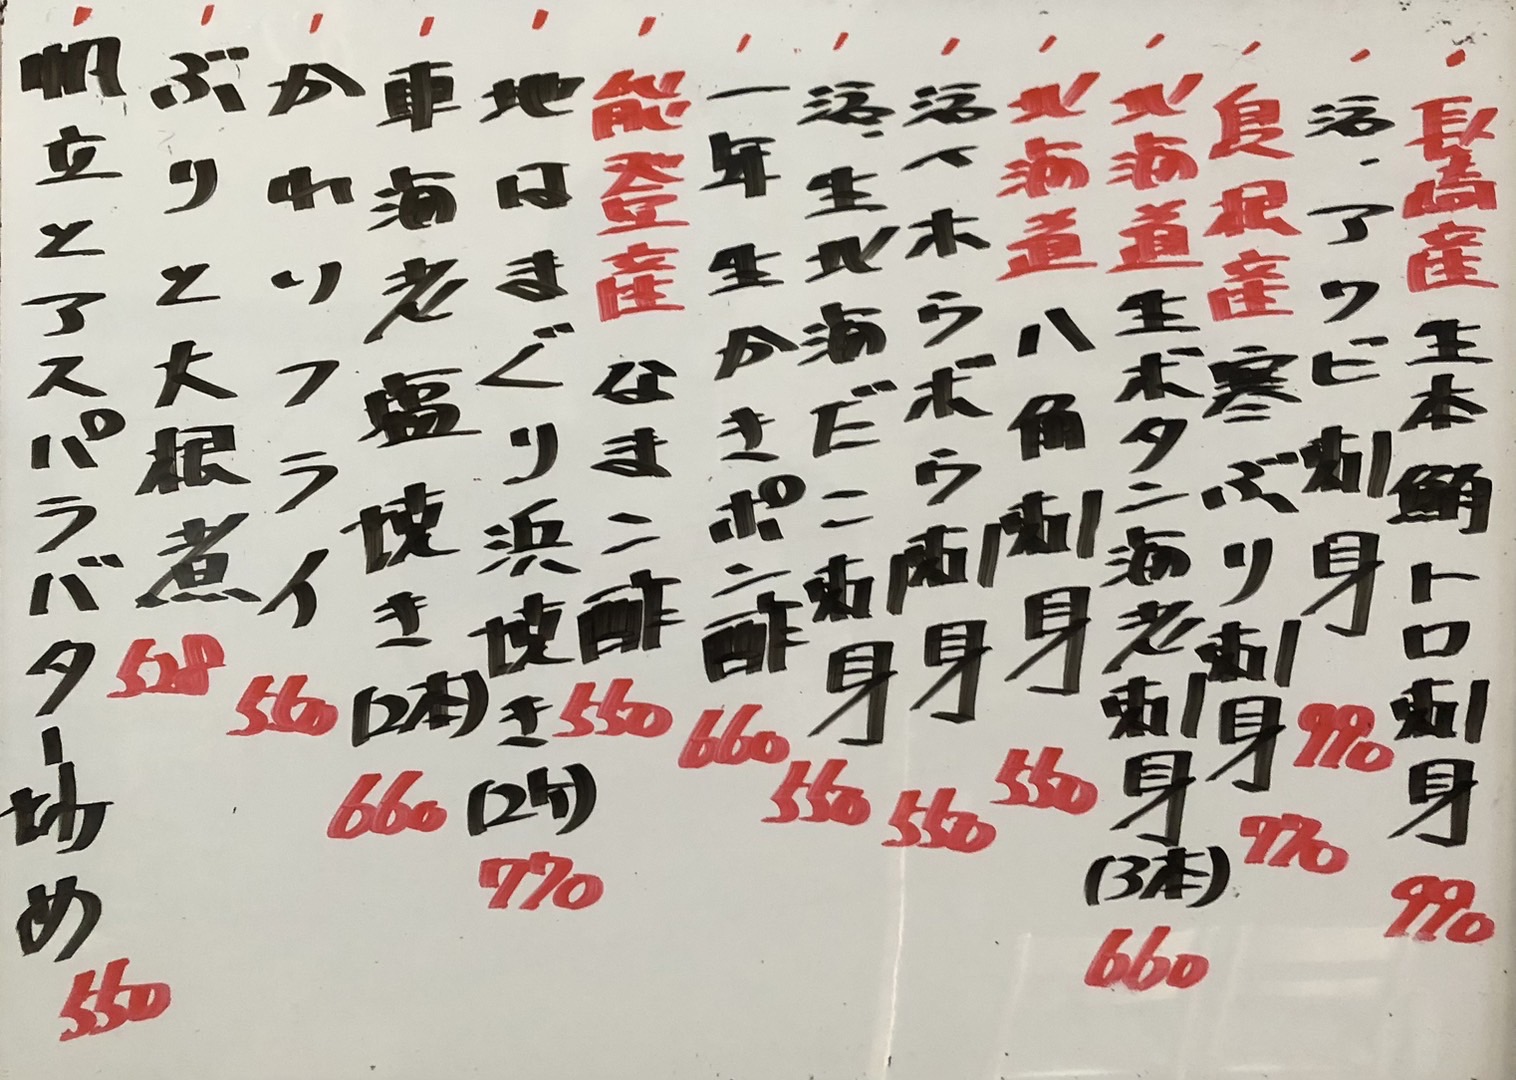 長崎産 生本鮪トロ刺身 990
活〆アワビ刺身 990
良根産 寒ぶり刺身 770
北海道 生ボタン海老刺身 (3本) 660
北海道 八角刺身 550
活〆ホウボウ刺身 550
活〆生北海だこ刺身 550
一年生かきポン酢 660
能登産 なまこ酢 550
地はまぐり浜焼き (2ケ) 770
車海老塩焼き (2本) 660
かわりフライ 560
ぶりと大根煮 528
帆立とアスパラバター炒め 550